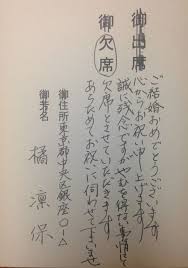 ご結婚おめでとうございます
御出席
心からお祝い申し上げます
御欠席
誠に残念ですがやむを得ない事情にて
欠席とさせていただきます
あらためてお祝いに伺わせて下さいませ
御住所 東京都中央区銀座〇-△
御芳名 橘 凛保